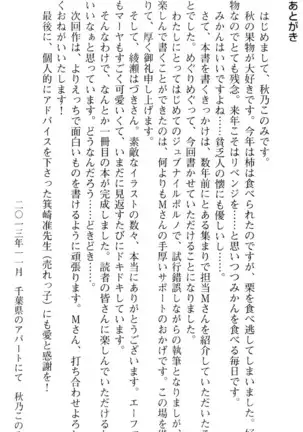 あとがき
はじめまして、秋乃このみです。
秋の果物が大好きです。今年は柿は食べられたのですが、栗を食べ逃してしまいました。好
物なのでとても残念。来年こそはリベンジを……と思いつつみかんを食べる毎日です。
みかんはいいですよね……貧乏人の懐にも優しいし……。
さて、本書を書くきっかけは、数年前にとある集まりで担当Mさんを紹介していただいた
とでした。めぐりめぐって、今回書かせていただけることになりました。
わたしにとってはじめてのジュブナイルポルノで、試行錯誤しながらの執筆となりましが、
楽しんで書くことができたのは、何よりもMさんの手厚いサポートのおかげです。この場を借
りて、厚く御礼申し上げます。
そして、綾瀬はづきさん。素敵なイラストの数々、本当にありがとうございます。エーフ
もマーヤもすごく可愛くて、いまだに見返すたびにドキドキしています。
そんなわけで、なんとか一冊目の本が完成しました。読者の皆さんに楽しんでいただける
いいなぁと思っています。どうなんだろう……どきどき……。
次回作は、よりえっちで面白いものを書けるように頑張ります。Mさん、打ち合わせよろし
くおねがいいたします!
最後に、個人的にアドバイスを下さった箕崎准先生(売れっ子)にも愛と感謝を!
二〇一三年一一月 千葉県のアパートにて 秋乃この